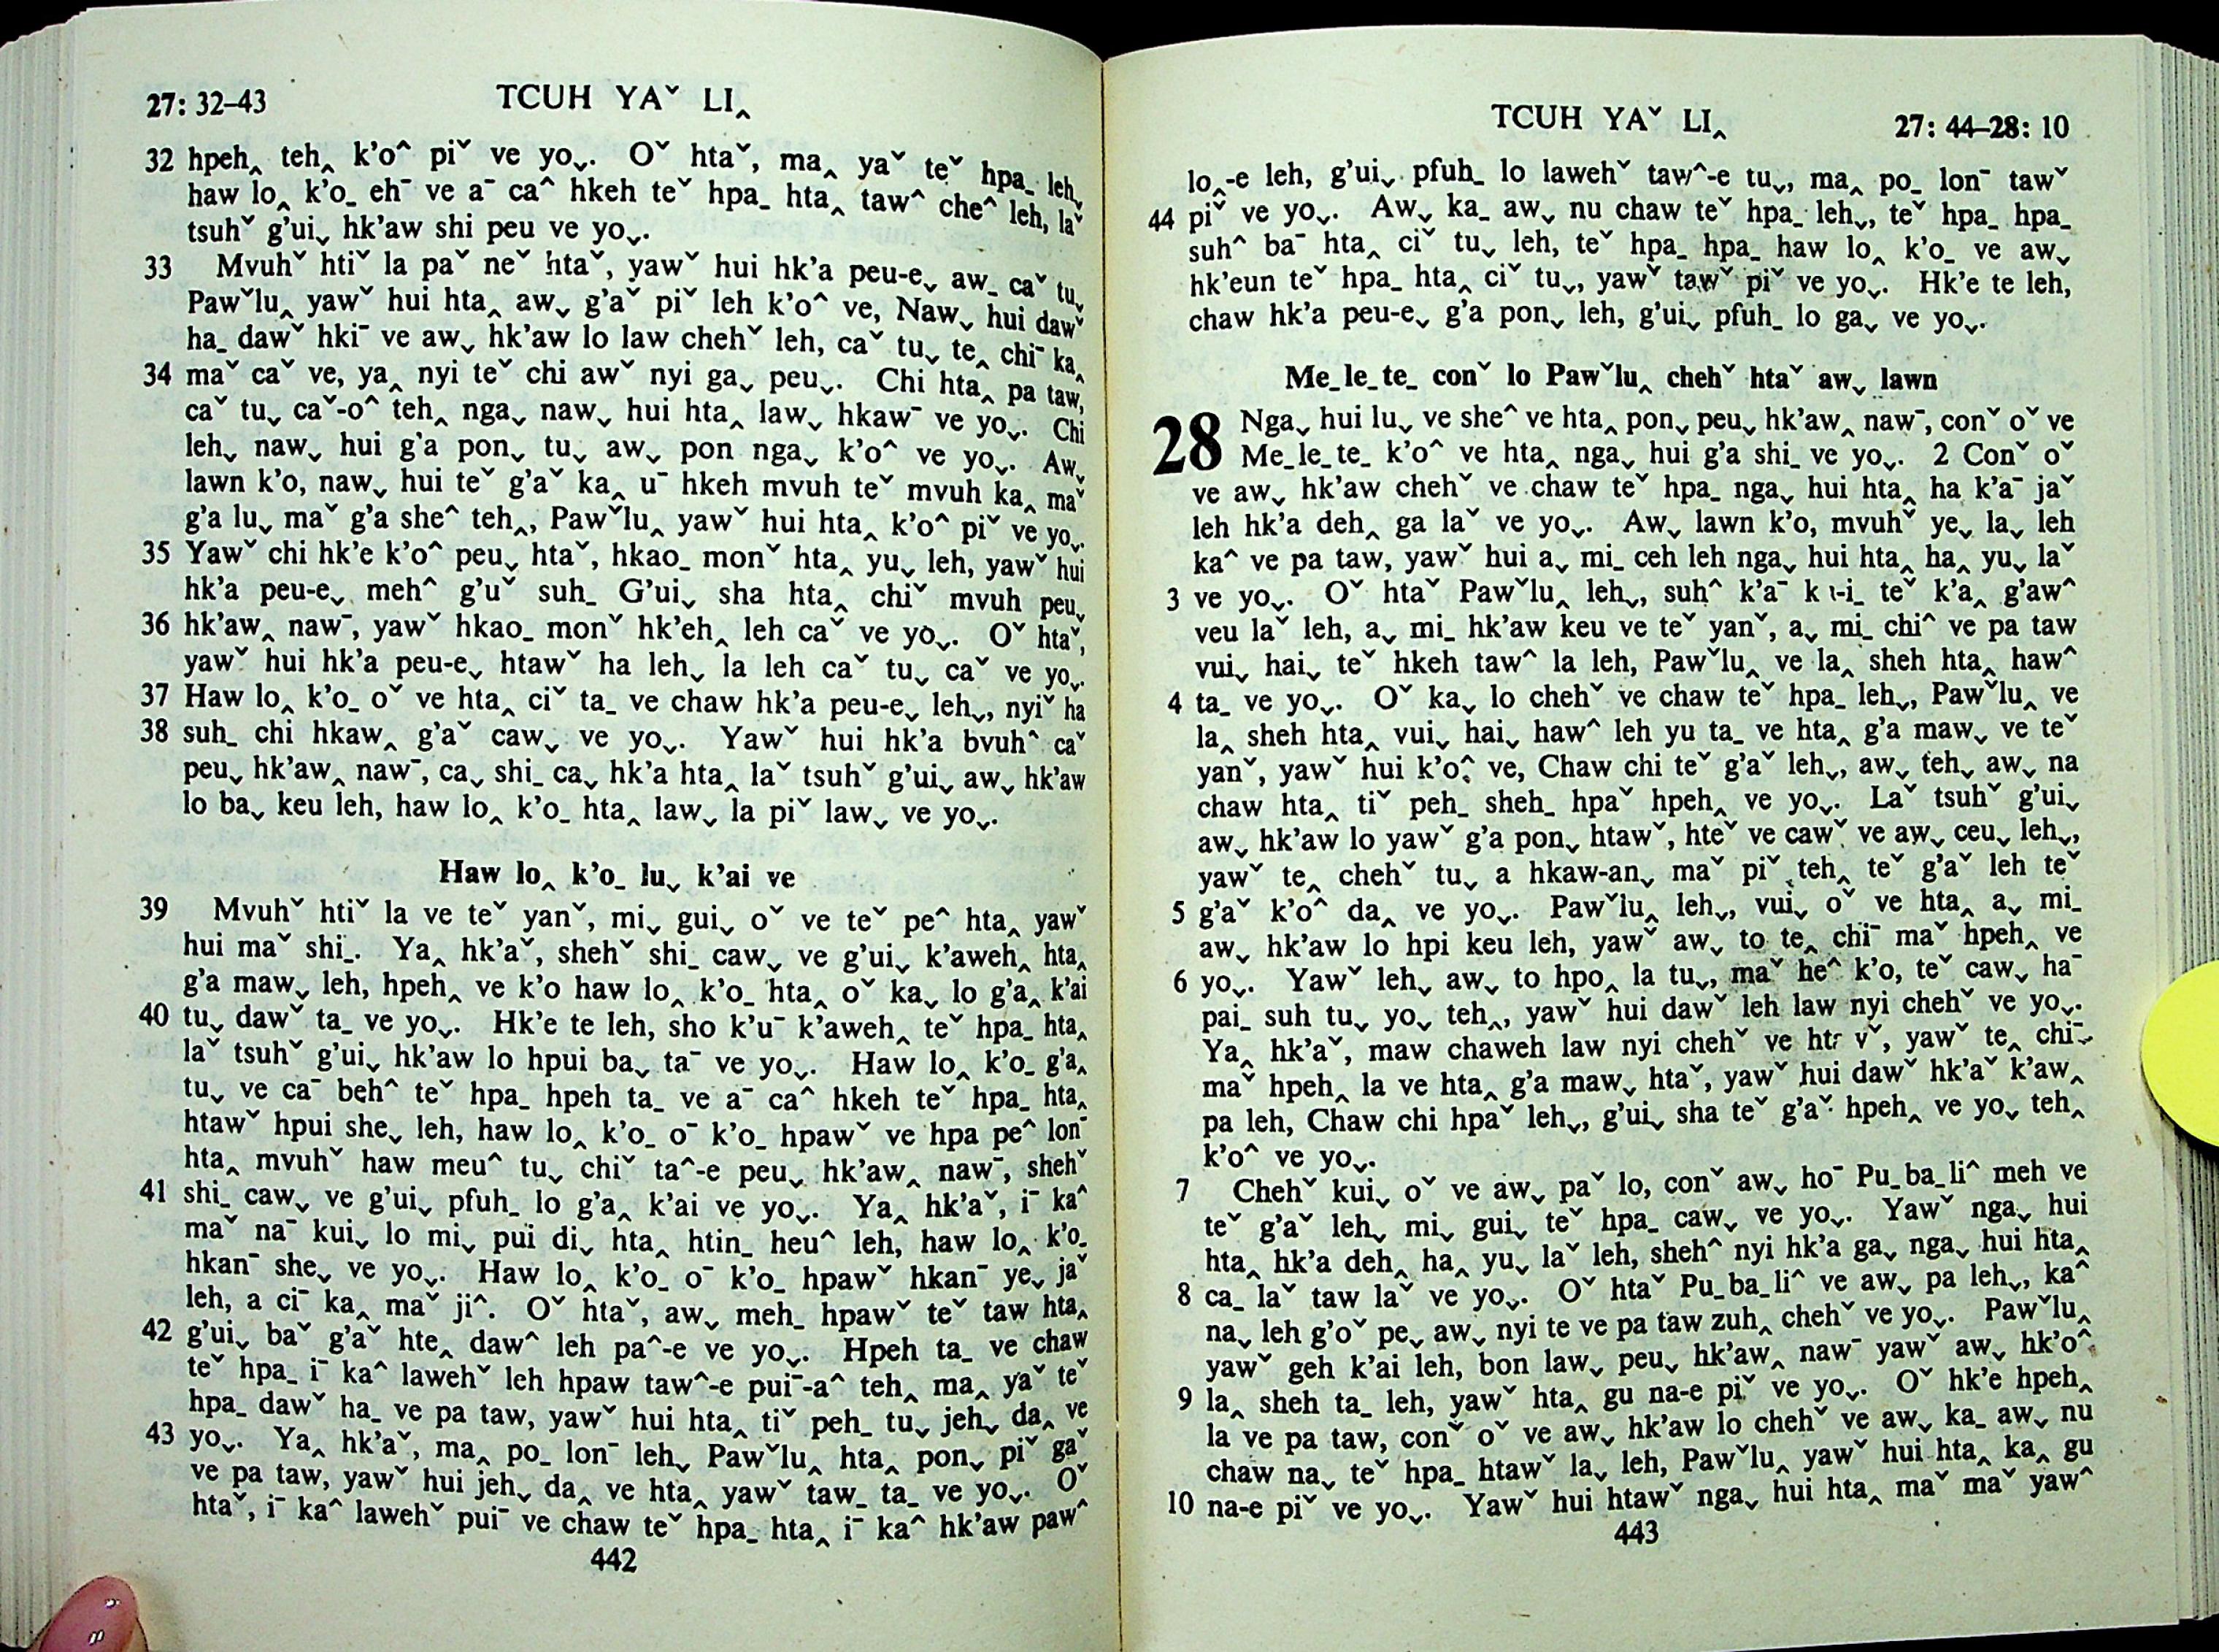 27: 32–43 TCUH YAˇ LI‸
32 hpeh‸ teh‸ k'o^ piˇ ve yoˬ. Oˇ htaˇ, ma‸ yaˇ teˇ hpa_ leh‸
haw lo‸ k'o_ ehˉ ve aˉ ca^ hkeh teˇ hpa_ hta‸ taw^ che^ leh, laˇ
tsuhˇ g'uiˬ hk'aw shi peu ve yoˬ.
33 Mvuhˇ htiˇ la paˇ neˇ htaˇ, yawˇ hui hk'a peu-eˬ aw_ caˇ tuˬ
Pawˇlu‸ yawˇ hui hta‸ awˬ g'aˇ piˇ leh k'o^ ve, Nawˬ hui dawˇ
ha_ dawˇ hkiˉ ve awˬ hk'aw lo law chehˇ leh, caˇ tuˬ te‸ chiˉ ka‸
34 maˇ caˇ ve, ya‸ nyi teˇ chi awˇ nyi gaˬ peuˬ. Chi hta‸ pa taw,
caˇ tuˬ caˇ-o^ teh‸ ngaˬ nawˬ hui hta‸ lawˬ hkawˉ ve yoˬ. Chi
lehˬ nawˬ hui g'a ponˬ tuˬ awˬ pon ngaˬ k'o^ ve yoˬ. Awˬ
lawn k'o, nawˬ hui teˇ g'aˇ ka‸ uˉ hkeh mvuh teˇ mvuh ka‸ maˇ
g'a luˬ maˇ g'a she^ teh‸, Pawˇlu‸ yawˇ hui hta‸ k'o^ piˇ ve yoˬ.
35 Yawˇ chi hk'e k'o^ peuˬ htaˇ, hkao_ monˇ hta‸ yuˬ leh, yawˇ hui
hk'a peu-eˬ meh^ g'uˇ suh_ G'uiˬ sha hta‸ chiˇ mvuh peuˬ
36 hk'aw‸ nawˉ, yawˇ hkao_ monˇ hk'eh‸ leh caˇ ve yoˬ. Oˇ htaˇ,
yawˇ hui hk'a peu-eˬ htawˇ ha lehˬ la leh caˇ tuˬ caˇ ve yoˬ.
37 Haw lo‸ k'o_ oˇ ve hta‸ ciˇ ta_ ve chaw hk'a peu-eˬ lehˬ, nyiˇ ha
38 suh_ chi hkaw‸ g'aˇ cawˬ ve yoˬ. Yawˇ hui hk'a bvuh^ caˇ
peuˬ hk'aw‸ nawˉ, caˬ shi_ caˬ hk'a hta‸ laˇ tsuhˇ g'uiˬ awˬ hk'aw
lo baˬ keu leh, haw lo‸ k'o_ hta‸ lawˬ la piˇ lawˬ ve yoˬ.
Haw lo‸ k'o_ luˬ k'ai ve
39 Mvuhˇ htiˇ la ve teˇ yanˇ, miˬ guiˬ oˇ ve teˇ pe^ hta‸ yawˇ
hui maˇ shi_. Ya‸ hk'aˇ, shehˇ shi_ cawˬ ve g'uiˬ k'aweh‸ hta‸
g'a mawˬ leh, hpeh‸ ve k'o haw lo‸ k'o_ hta‸ oˇ kaˬ lo g'a‸ k'ai
40 tuˬ dawˇ ta_ ve yoˬ. Hk'e te leh, sho k'uˉ k'aweh‸ teˇ hpa_ hta‸
laˇ tsuhˇ g'uiˬ hk'aw lo hpui baˬ taˉ ve yoˬ. Haw lo‸ k'o_ g'a‸
tuˬ ve caˉ beh^ teˇ hpa_ hpeh ta_ ve aˉ ca^ hkeh teˇ hpa_ hta‸
htawˇ hpui sheˬ leh, haw lo‸ k'o_ oˉ k'o_ hpawˇ ve hpa pe^ lonˉ
hta‸ mvuhˇ haw meu^ tuˬ chiˇ ta^-e peuˬ hk'aw‸ nawˉ, shehˇ
41 shi_ cawˬ ve g'uiˬ pfuh_ lo g'a‸ k'ai ve yoˬ. Ya‸ hk'aˇ, iˉ ka^
maˇ naˉ kuiˬ lo miˬ pui diˬ hta‸ htin_ heu^ leh, haw lo‸ k'o_
hkanˉ sheˬ ve yoˬ. Haw lo‸ k'o_ oˉ k'o_ hpawˇ hkanˉ yeˬ jaˇ
leh, a ciˉ ka‸ maˇ ji^. Oˇ htaˇ, awˬ meh_ hpawˇ teˇ taw hta‸
42 g'uiˬ baˇ g'aˇ hte‸ daw^ leh pa^-e ve yoˬ. Hpeh ta_ ve chaw
teˇ hpa_ iˉ ka^ lawehˇ leh hpaw taw^-e puiˉ-a^ teh‸ ma‸ yaˇ teˇ
hpa_ dawˇ ha_ ve pa taw, yawˇ hui hta‸ tiˇ peh_ tuˬ jehˬ da‸ ve
43 yoˬ. Ya‸ hk'aˇ, ma‸ po_ lonˉ lehˬ Pawˇlu‸ hta‸ ponˬ piˇ gaˇ
ve pa taw, yawˇ hui jehˬ da‸ ve hta‸ yawˇ taw_ ta_ ve yoˬ. Oˇ
htaˇ, iˉ ka^ lawehˇ puiˉ ve chaw teˇ hpa_ hta‸ iˉ ka^ hk'aw paw^
442
TCUH YAˇ LI‸ 27: 44–28: 10
lo‸-e leh, g'uiˬ pfuh_ lo lawehˇ taw^-e tuˬ, ma‸ po_ lonˉ tawˇ
44 piˇ ve yoˬ. Awˬ ka_ awˬ nu chaw teˇ hpa_ lehˬ, teˇ hpa_ hpa_
suh^ baˉ hta‸ ciˇ tuˬ leh, teˇ hpa_ hpa_ haw lo‸ k'o_ ve awˬ
hk'eun teˇ hpa_ hta‸ ciˇ tuˬ, yawˇ tawˇ piˇ ve yoˬ. Hk'e te leh,
chaw hk'a peu-eˬ g'a ponˬ leh, g'uiˬ pfuh_ lo gaˬ ve yoˬ.
Me_le_te_ conˇ lo Pawˇlu‸ chehˇ htaˇ awˬ lawn
28 Ngaˬ hui luˬ ve she^ ve hta‸ ponˬ peuˬ hk'aw‸ nawˉ, conˇ oˇ ve
Me_le_te_ k'o^ ve hta‸ ngaˬ hui g'a shi_ ve yoˬ. 2 Conˇ oˇ
ve awˬ hk'aw chehˇ ve chaw teˇ hpa_ ngaˬ hui hta‸ ha k'aˉ jaˇ
leh hk'a deh‸ ga laˇ ve yoˬ. Awˬ lawn k'o, mvuhˇ yeˬ laˬ leh
ka^ ve pa taw, yawˇ hui aˬ mi_ ceh leh ngaˬ hui hta‸ ha‸ yuˬ laˇ
3 ve yoˬ. Oˇ htaˇ Pawˇlu‸ lehˬ, suh^ k'aˉ teˇ k'a‸ g'aw^
veu laˇ leh, aˬ mi_ hk'aw keu ve teˇ yanˇ, aˬ mi_ chi^ ve pa taw
vuiˬ haiˬ teˇ hkeh taw^ la leh, Pawˇlu‸ ve la‸ sheh hta‸ haw^
4 ta_ ve yoˬ. Oˇ kaˬ lo chehˇ ve chaw teˇ hpa_ lehˬ, Pawˇlu‸ ve
la‸ sheh hta‸ vuiˬ haiˬ haw^ leh yu ta_ ve hta‸ g'a mawˬ ve teˇ
yanˇ, yawˇ hui k'o^ ve, Chaw chi teˇ g'aˇ lehˬ, awˬ tehˬ awˬ na
chaw hta‸ tiˇ peh_ sheh_ hpaˇ hpeh‸ ve yoˬ. Laˇ tsuhˇ g'uiˬ
awˬ hk'aw lo yawˇ g'a ponˬ htawˇ, hteˇ ve cawˇ ve awˬ ceuˬ lehˬ,
yawˇ te‸ chehˇ tuˬ a hkaw-anˬ maˇ piˇ teh‸ teˇ g'aˇ leh teˇ
5 g'aˇ k'o^ da‸ ve yoˬ. Pawˇlu‸ lehˬ, vuiˬ oˇ ve hta‸ aˬ mi_
awˬ hk'aw lo hpi keu leh, yawˇ awˬ to te‸ chiˉ maˇ hpeh‸ ve
6 yoˬ. Yawˇ lehˬ awˬ to hpo‸ la tuˬ, maˇ he^ k'o, teˇ cawˬ haˉ
pai_ suh tuˬ yoˬ teh‸, yawˇ hui dawˇ leh law nyi chehˇ ve yoˬ.
Ya‸ hk'aˇ, maw chaweh law nyi chehˇ ve yawˇ te‸ chiˉ
maˇ hpeh‸ la ve hta‸ g'a mawˬ htaˇ, yawˇ hui dawˇ hk'aˇ k'aw‸
pa leh, Chaw chi hpaˇ lehˬ, g'uiˬ sha teˇ g'aˇ hpeh‸ ve yoˬ teh‸
k'o^ ve yoˬ.
7 Chehˇ kuiˬ oˇ ve awˬ paˇ lo, conˇ awˬ hoˉ Pu_ba_li^ meh ve
teˇ g'aˇ lehˬ miˬ guiˬ teˇ hpa_ cawˬ ve yoˬ. Yawˇ ngaˬ hui
hta‸ hk'a deh‸ ha‸ yuˬ laˇ leh, sheh^ nyi hk'a gaˬ ngaˬ hui hta‸
8 ca_ laˇ taw laˇ ve yoˬ. Oˇ htaˇ Pu_ba_li^ ve awˬ pa lehˬ, ka^
naˬ leh g'oˇ peˬ awˬ nyi te ve pa taw zuh‸ chehˇ ve yoˬ. Pawˇlu‸
yawˇ geh k'ai leh, bon lawˬ peuˬ hk'aw‸ nawˉ yawˇ awˬ hk'o^
9 la‸ sheh ta_ leh, yawˇ hta‸ gu na-e piˇ ve yoˬ. Oˇ hk'e hpeh‸
la ve pa taw, conˇ oˇ ve awˬ hk'aw lo chehˇ ve awˬ ka_ awˬ nu
chaw naˬ teˇ hpa_ htawˇ laˬ leh, Pawˇlu‸ yawˇ hui hta‸ ka‸ gu
10 na-e piˇ ve yoˬ. Yawˇ hui htawˇ ngaˬ hui hta‸ maˇ maˇ yaw^
443